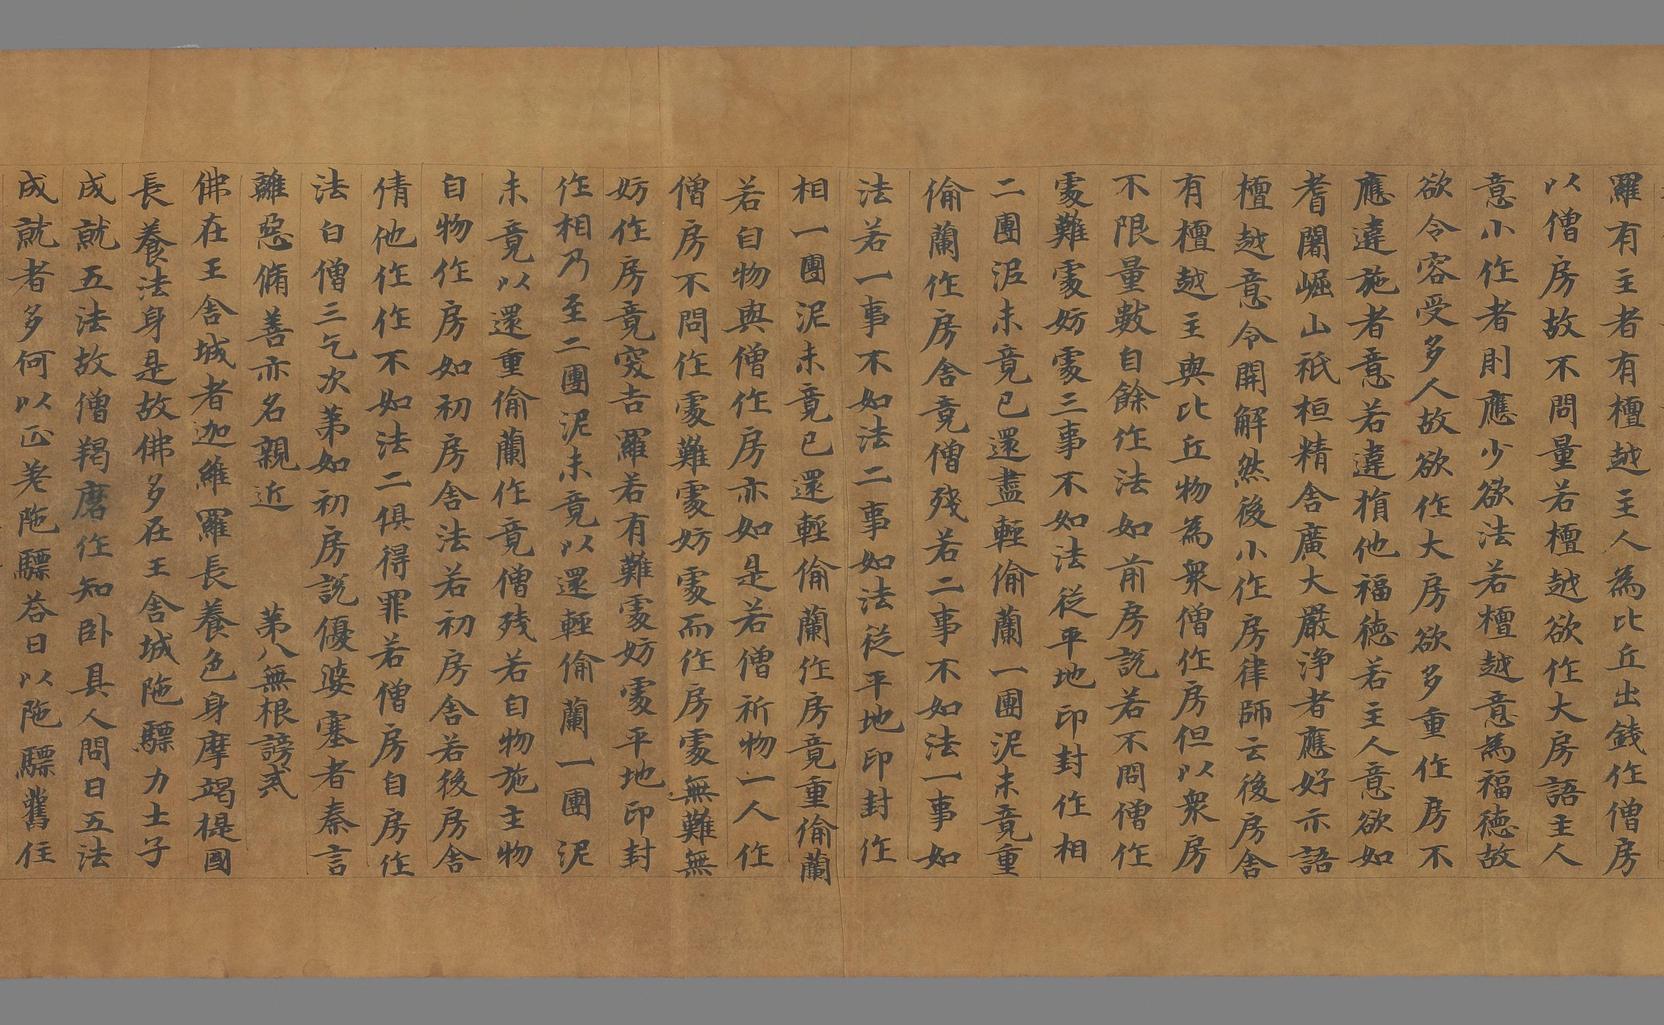 羅有主者有檀越主人為比丘出錢作僧房
以僧房故不問量若檀越欲作大房語主人
意小作者則應少欲法若檀越意為福徳故
欲令容受多人故欲作大房欲多重作房不
應違施者意若違損他福徳若主人意欲如
耆闍崛山祇桓精舍廣大嚴淨者應好示語
檀越意令開解然後小作房律師云後房舍
有檀越主與比丘物為衆僧作房但以衆房
不限量數自餘作法如前房說若不問僧作
處難處妨處三事不如法從平地印封作相
二團泥未竟已還盡輕偷蘭一團泥未竟重
偷蘭作房舍竟僧殘若二事不如法一事如
法若一事不如法二事如法從平地印封作
相一團泥未竟已還輕偷蘭作房竟重偷蘭
若自物與僧作房亦如是若僧祈物一人作
僧房不問作處難處妨處而作房處無難無
妨作房竟突吉羅若有難處妨處平地印封
作相乃至二團泥未竟以還輕偷蘭一團泥
未竟以還重偷蘭作竟僧殘若自物施主物
自物作房如初房舍法若初房舍若後房舍
倩他作作不如法二俱得罪若僧房自房作
法白僧三乞次苐如初房說優婆塞者秦言
離惡脩善亦名親近　苐八無根謗貳
佛在王舍城者迦維羅長養色身摩竭提國
長養法身是故佛多在王舍城陁驃力士子
成就五法故僧羯磨作知卧具人問曰五法
成就者多何以正差陁驃荅曰以陁驃舊住